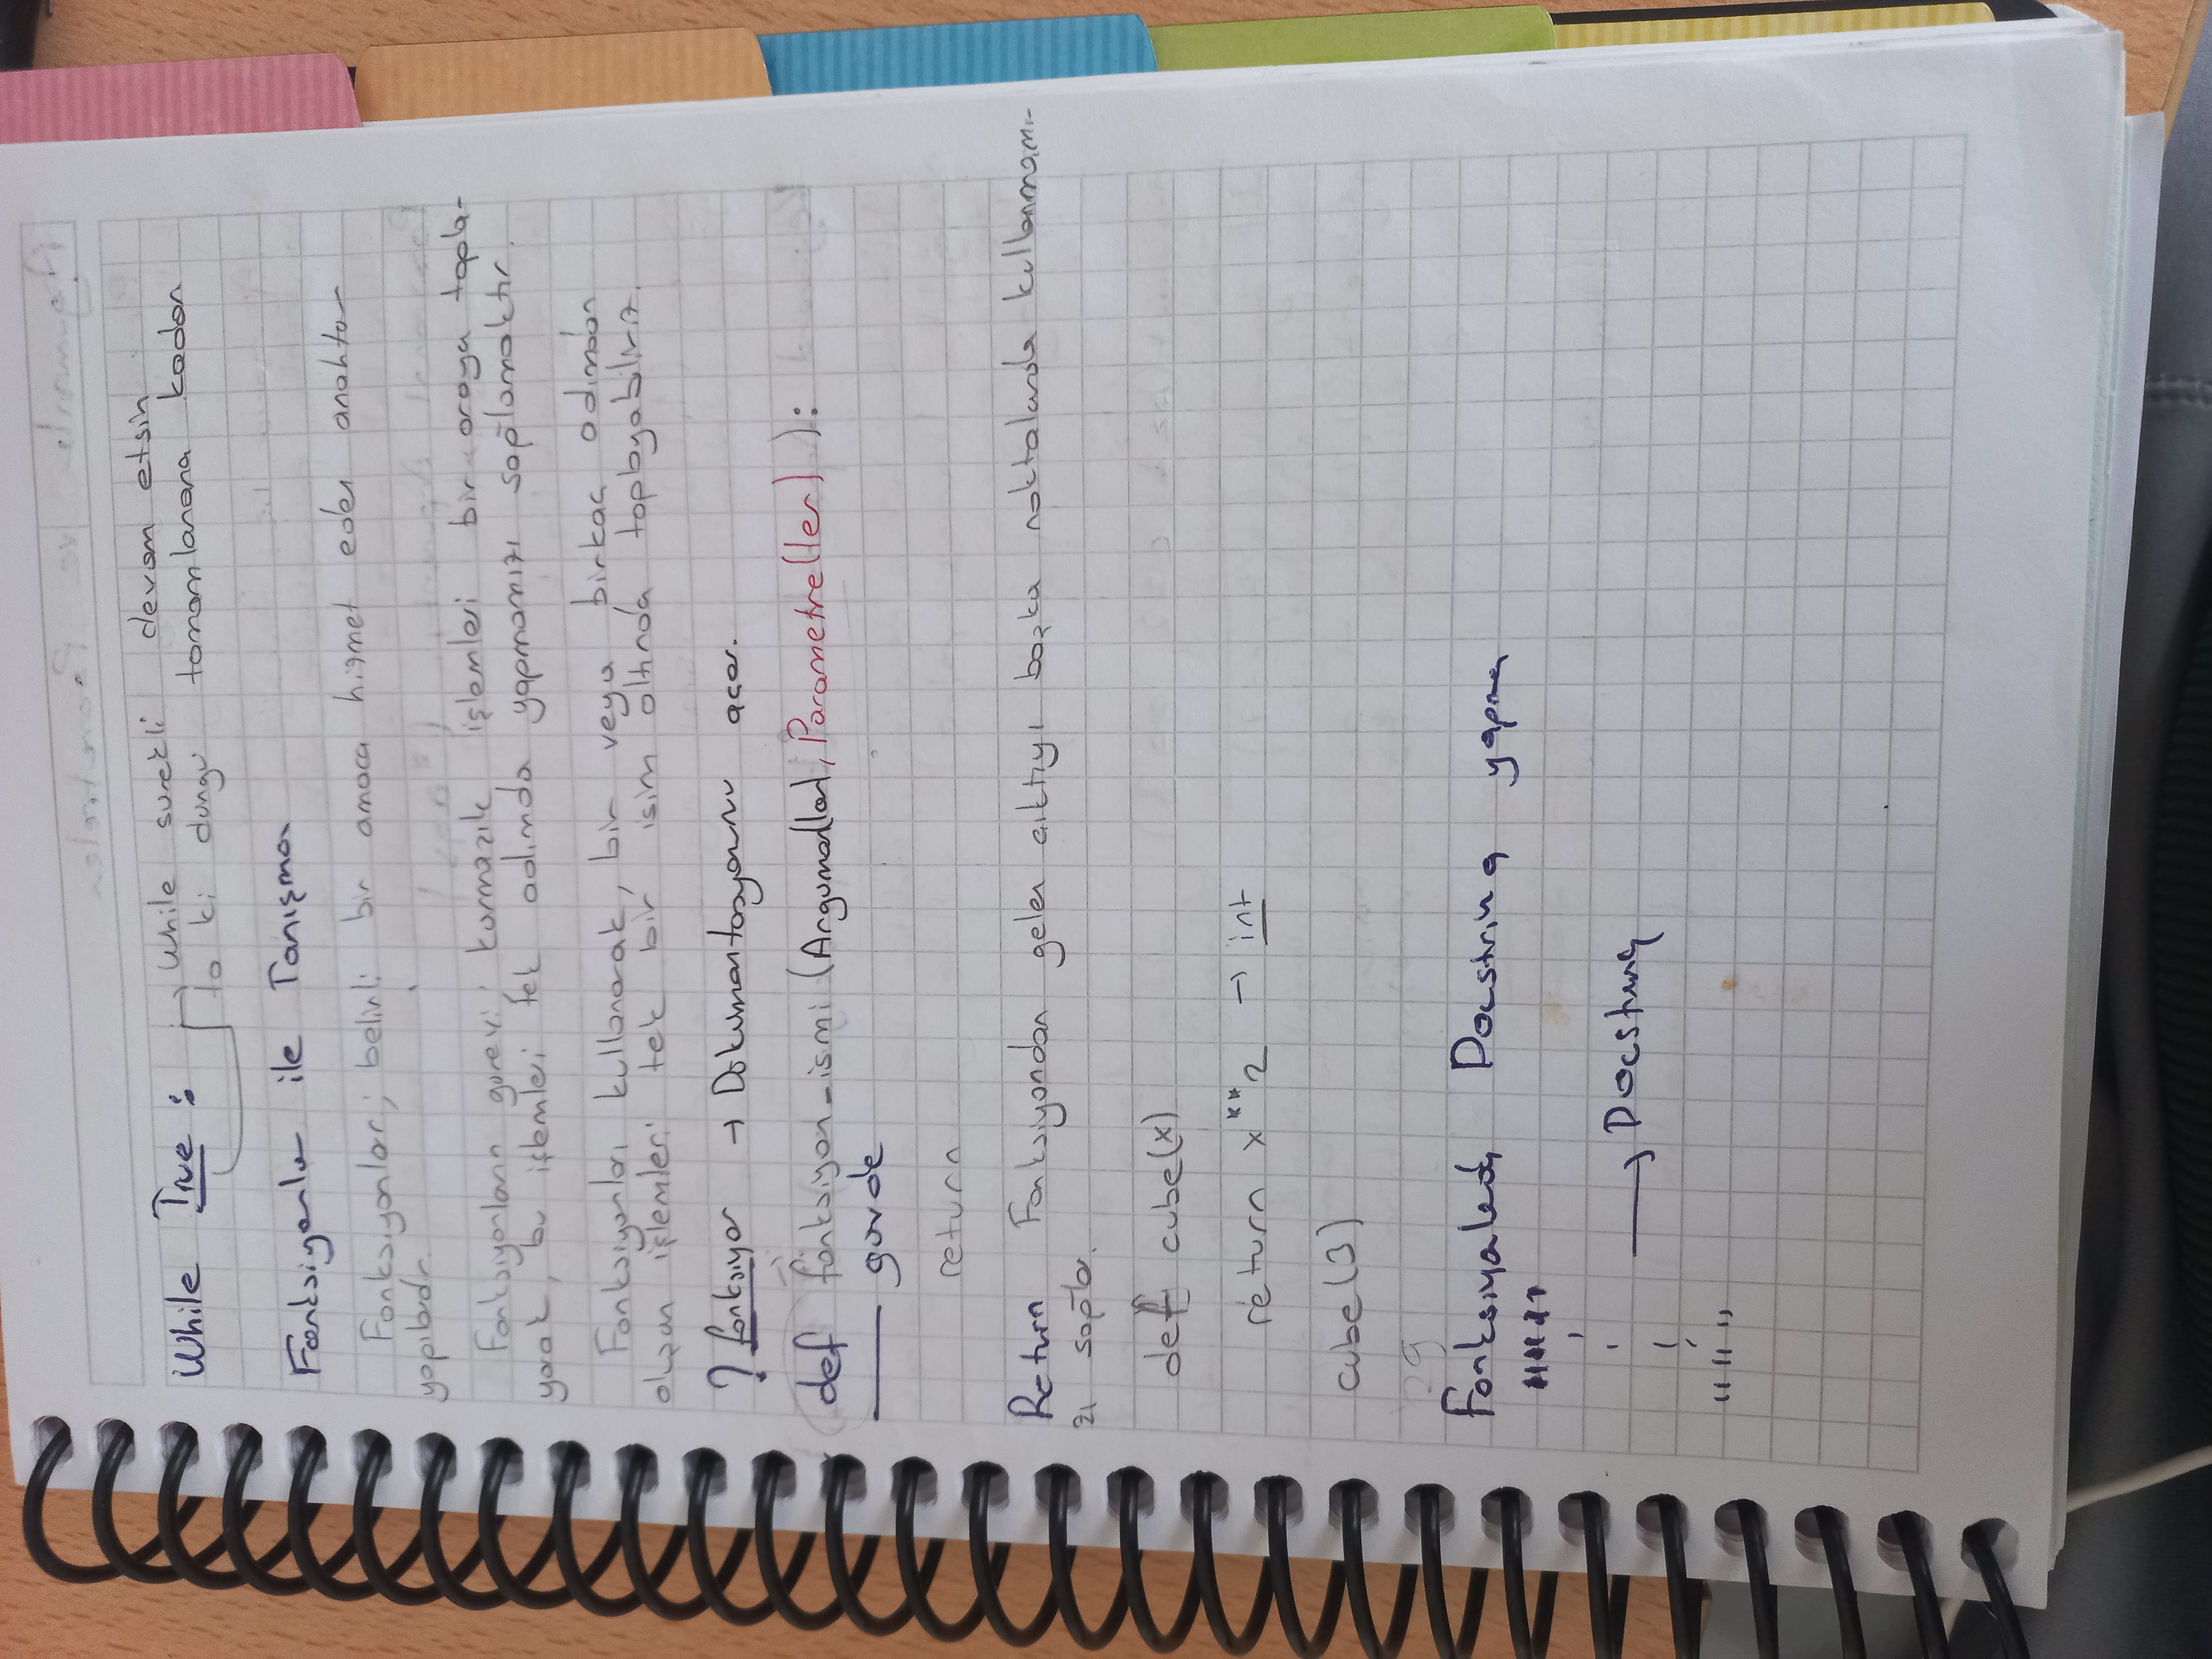 While True : → While surekli devam etsin
ta ki dungu tamamlanana kadar
Fonksiyonlar ile Tanışma
Fonksiyonlar; belirli bir amaca hizmet eden anahtar
yapılardır.
Fonksiyonların gorevi; karmaşık işlemleri bir araya topla-
yarak, bu işlemleri tek adımda yapmamızı sağlamaktır.
Fonksiyonları kullanarak, bir veya birkaç adımdan
oluşan işlemleri tek bir isim altında toplayabiliriz.
? fonksiyon → Dokumantasyonunu açar.
def fonksiyon_ismi (Arguman(lar), Parametre(ler) ):
govde
return
Return Fonksiyondan gelen çıktıyı başka noktalarda kullanmamı-
zı sağlar.
def cube(x)
return x**2 → int
cube(3)
9
Docstring yapma
" " "
→ Docstring
" " "